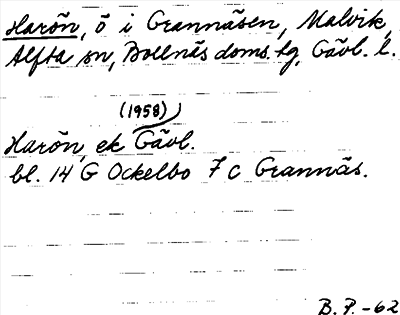 Harön, ö i Grannäsen, Malvik,
Alfta sn, Bollnäs doms.hg, Gävl. l.
(1958)
Harön, ek Gävl.
bl. 14 G Ockelbo 7 c Grannäs.
B. P. -62